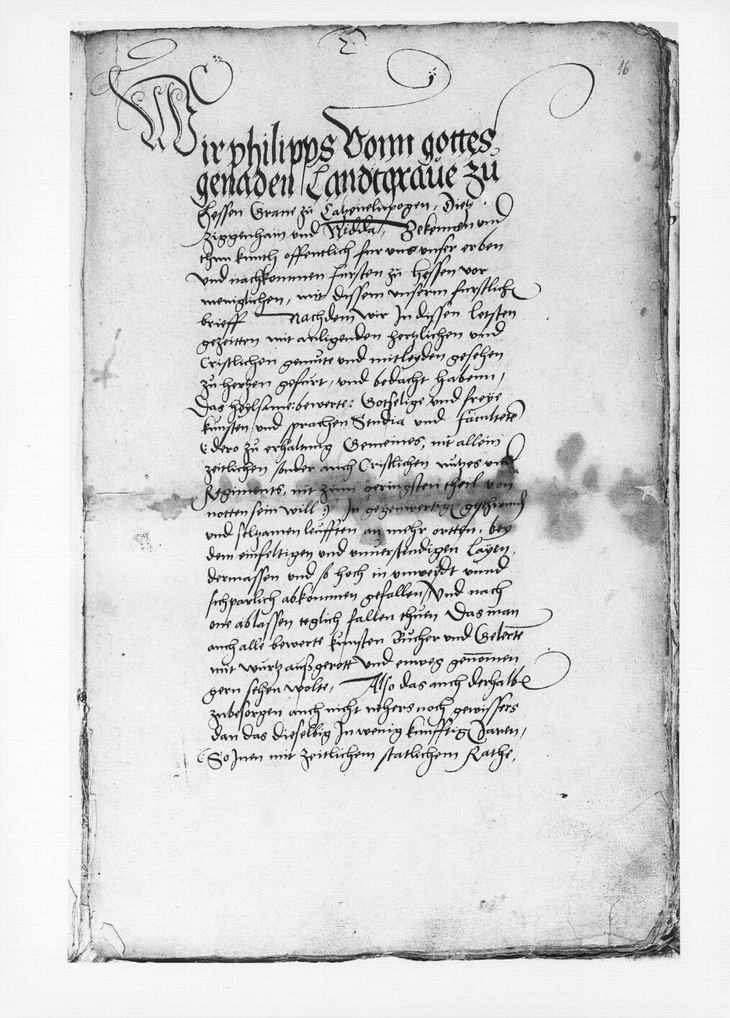 46
Wir philipps Vonn gottes
genaden Landtgraue zu
Hessen Graue zu Catzenelnpogen, Dietz
Ziggenhain und Nidda, Bekennen und
thun kunth offentlich fur uns unser erben
und nachkommen fursten zu Hessen vor
meniglichen, mit dissem unserm furstlich
brieff Nachdem wir In dissen letsten
gezeitten mit anligenden hertzlichen und
Cristlichen gemute und mitleyden gesehen
zu hertzen gefurt, und bedacht habenn,
Das heylsame bewerte: Gotselige und freye
kunsten und sprachen Studia und facultete
(dero zu erhaltung Gemeines, nit allein
zeitlichen sonder auch Cristlichen nutzes und
Regiments, nit zum geringsten theil von
notten sein will:) In gegenwertig geschwind
und seltzamen leufften an mehr ortten, bey
dem einfeltigen und unverstendigen Layen,
dermassen und so hoch in unwerdt unnd
sichparlich abkommen gefallen, Und nach
one ablassen teglich fallen thuen Das man
auch alle bewerte kunsten Bucher und Gelerte
mit wurtz außgerott und enweg genomen
gern sehen wolte, Also das auch derhalbe
zubesorgen auch nicht nehers noch gewissers
dan das dieselbig In wenig kunfftig Jaren,
(So Inen mit zeitlichem statlichem Rathe,